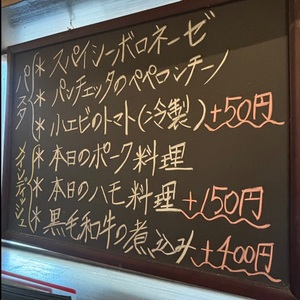 パスタ
* スパイシーボロネーゼ
* パンチェッタのペペロンチーノ
* 小エビのトマト(冷製) +50円
メインディッシュ
* 本日のポーク料理
* 本日のハモ料理 +150円
* 黒毛和牛の煮込み +400円